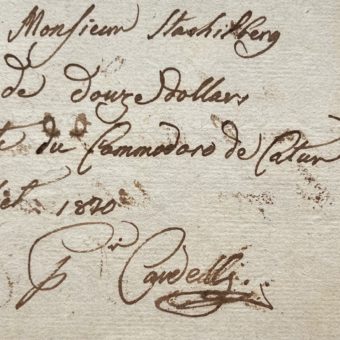 Monsieur Stachilberg
de douze dollars
du Commodore de Catur
1820
Pr Cardelli